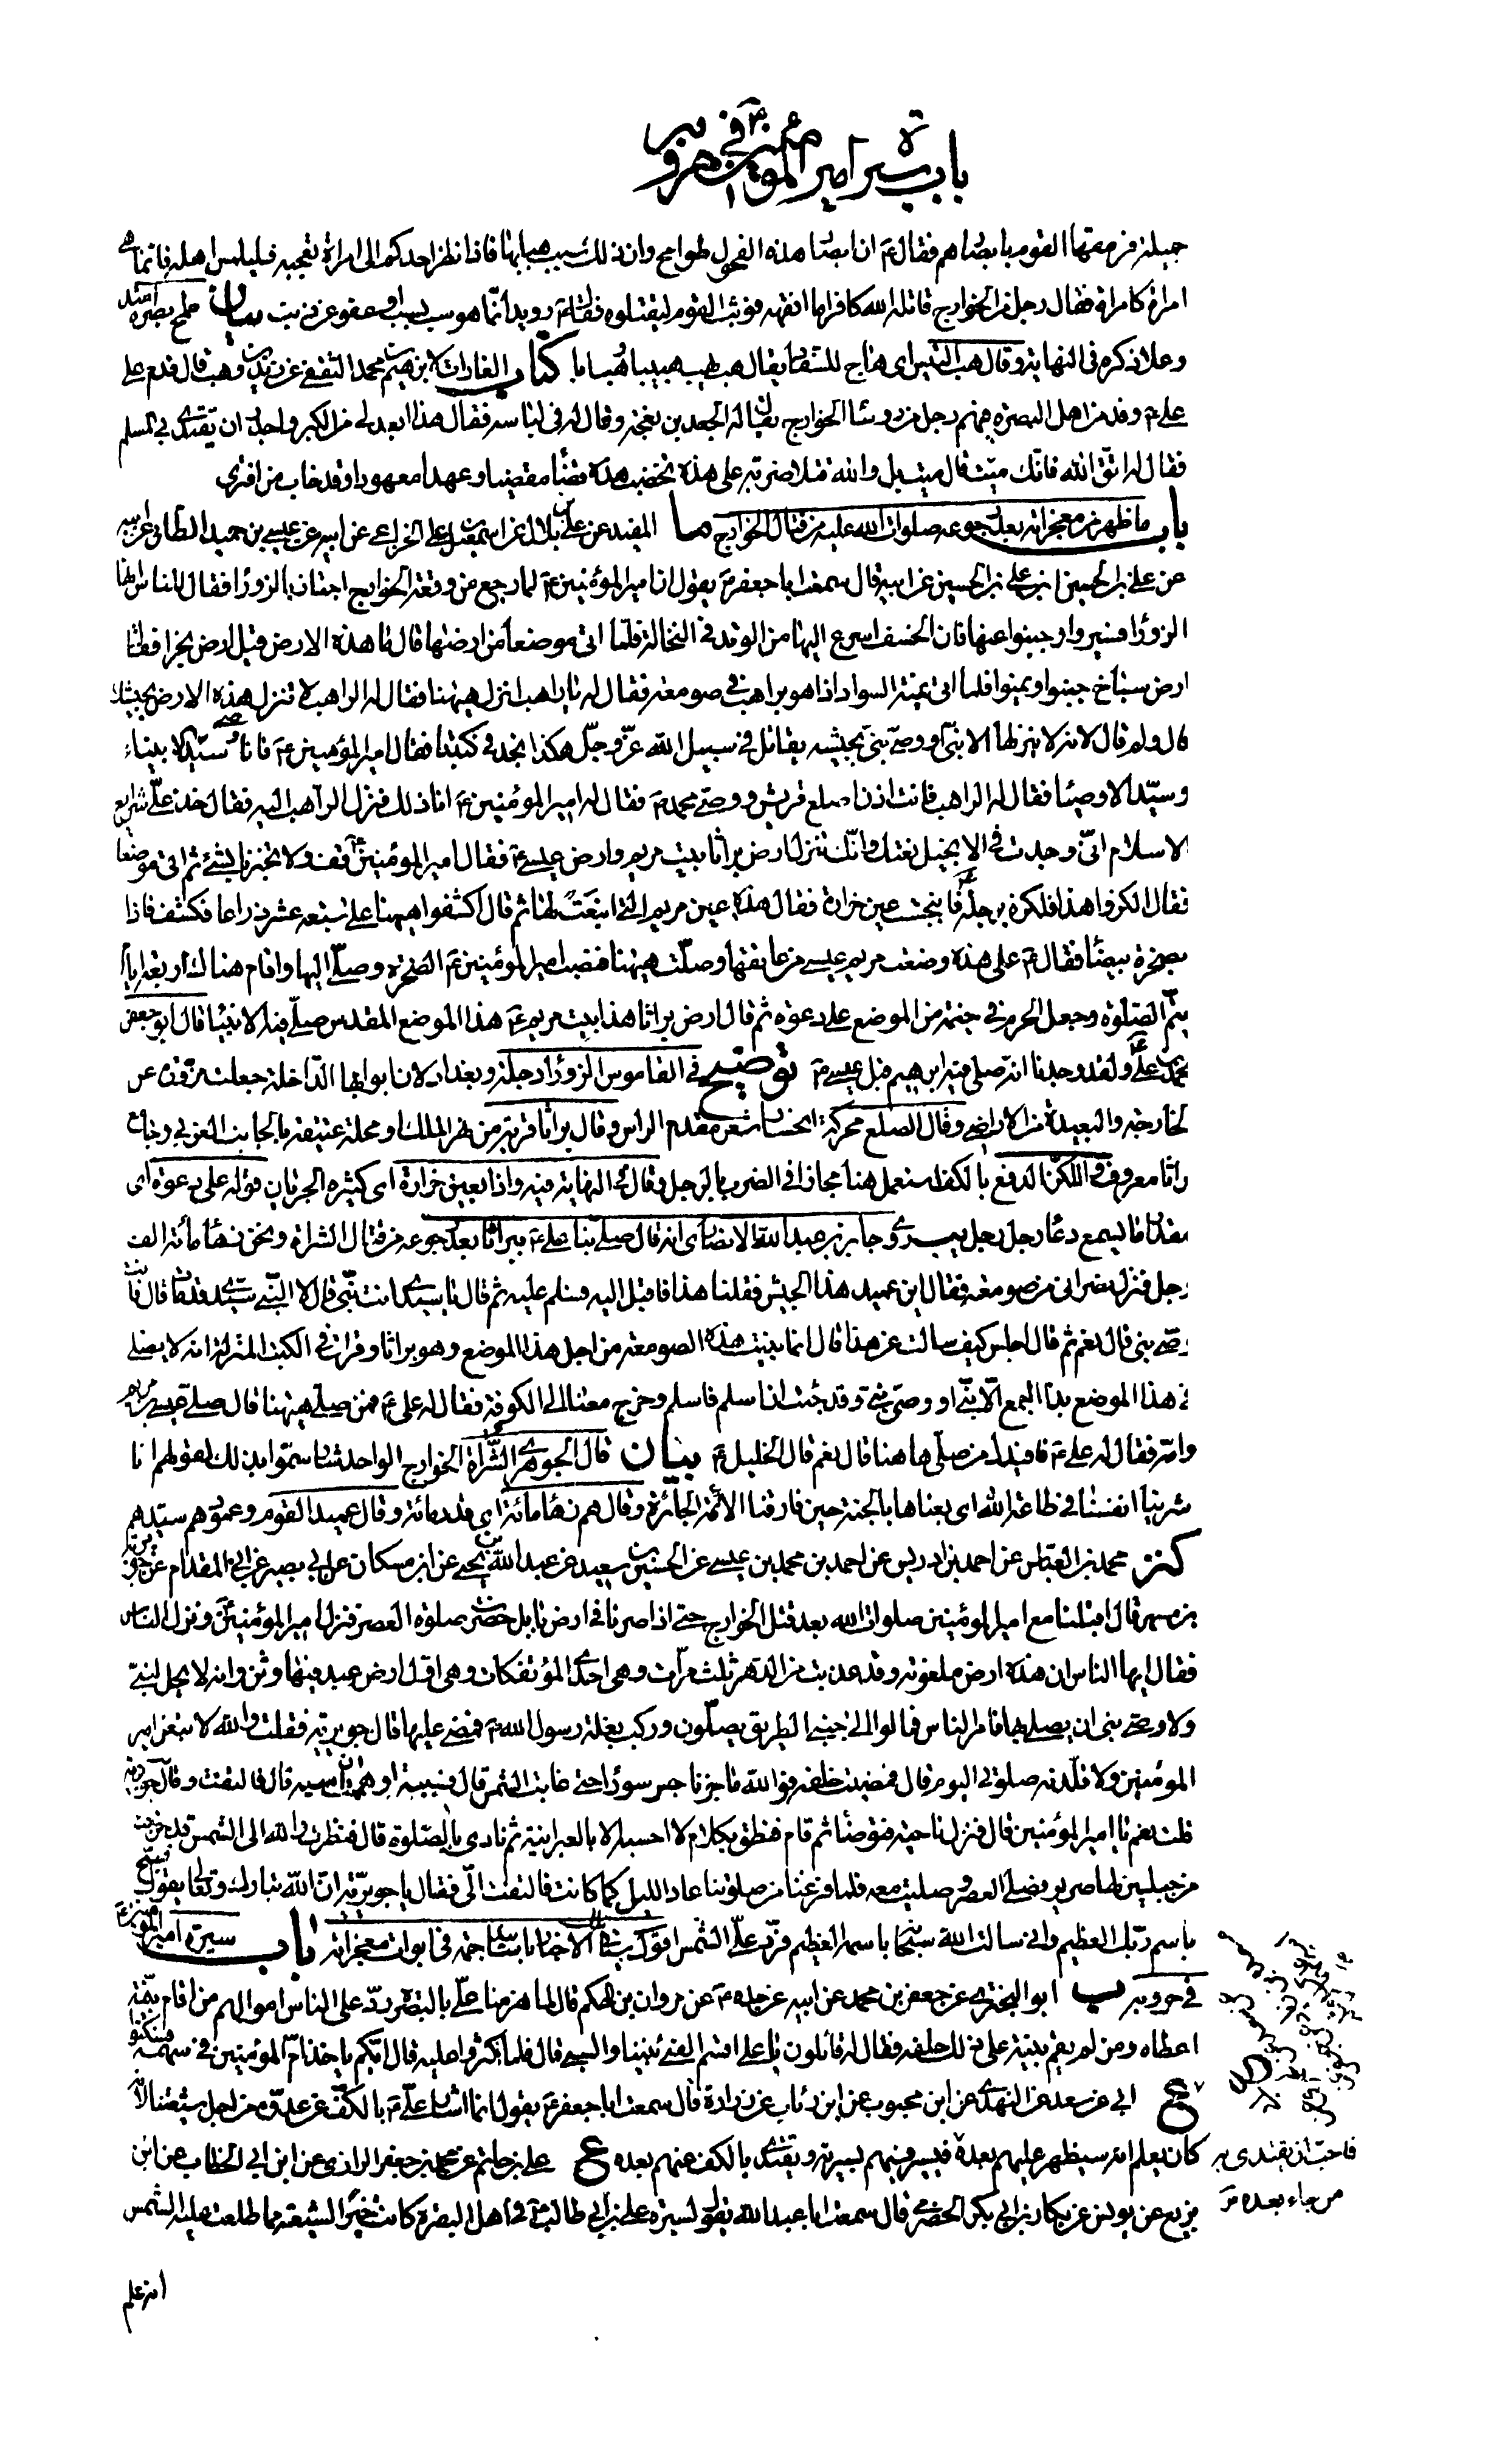 باب سيرة امير المؤمنين ع في حروبه
جميلة فرمقها القوم بابصارهم فقال ع ان ابصار هذه الفحول طوامح وان ذلك سبب هبابها فاذا نظر احدكم الى امراة تعجبه فليلمس اهله فانما هي
امراة كامراة فقال رجل من الخوارج قاتله الله كافرا ما افقهه فوثب القوم ليقتلوه فقال ع رويدا انما هو سب بسب او عفو عن ذنب بيان طمح بصره امتد
وعلا ذكره في النهاية وقال هب التيس اي هاج للسفاد يقال هب يهب هبيبا وهبابا كتاب الغارات لابرهيم بن محمد الثقفي عن زيد بن وهب قال قدم على
علي ع وفد من اهل البصرة منهم رجل من روساء الخوارج يقال له الجعد بن نعجة وقال له في لباسه فقال هذا ابعد لي من الكبر واجدر ان يقتدي بي المسلم
فقال له اتق الله فانك ميت قال ميت بل والله قتلا ضربة على هذه تخضب هذه قضاء مقضيا وعهدا معهودا وقد خاب من افترى
باب ما ظهر من معجزاته بعد رجوعه صلوات الله عليه من قتال الخوارج ما المفيد عن علي بن بلال عن اسمعيل بن علي الخزاعي عن ابيه عن عيسى بن حميد الطائي عن ابيه
عن علي بن الحسين بن علي بن الحسين عن ابيه قال سمعت ابا جعفر ع يقول ان امير المؤمنين ع لما رجع من وقعة الخوارج اجتاز بالزوراء فقال للناس انها
الزوراء فسيروا وجنبوا عنها فان الخسف اسرع اليها من الوتد في النخالة فلما اتى موضعا من ارضها قال ما هذه الارض قيل ارض بحرا فقال
ارض سباخ جنبوا ويمنوا فلما اتى يمنة السواد اذا هو براهب في صومعة فقال له يا راهب انزل ههنا فقال له الراهب لا تنزل هذه الارض بجيشك
قال ولم قال لانه لا ينزلها الا نبي او وصي نبي بجيشه يقاتل في سبيل الله عز وجل هكذا نجد في كتبنا فقال امير المؤمنين ع فانا وصي سيد الانبياء
وسيد الاوصياء فقال له الراهب فانت اذن اصلع قريش ووصي محمد ص فقال له امير المؤمنين ع انا ذلك فنزل الراهب اليه فقال خذ علي شرايع
الاسلام اني وجدت في الانجيل نعتك وانك تنزل ارض براثا بيت مريم وارض عيسى ع فقال امير المؤمنين ع قف ولا تخبرنا بشيء ثم اتى موضعا
فقال الكزوا هذا فلكزه برجله ع فانبجست عين خرارة فقال هذه عين مريم التي انبعت لها ثم قال اكشفوا ههنا على سبعة عشر ذراعا فكشف فاذا
بصخرة بيضاء فقال ع على هذه وضعت مريم عيسى من عاتقها وصلت ههنا فنصب امير المؤمنين ع الصخرة وصلى اليها واقام هناك اربعة ايام
يتم الصلوة وجعل الحرم في خيمة من الموضع على دعوة ثم قال ارض براثا هذا بيت مريم ع هذا الموضع المقدس صلى فيه الانبياء قال ابو جعفر
محمد بن علي ع ولقد وجدنا انه صلى فيه ابرهيم قبل عيسى ع توضيح في القاموس الزوراء دجلة وبغداد لان ابوابها الداخلة جعلت مزورة عن
الخارجة والبعيدة من الاراضي وقال الصلع محركة انحسار شعر مقدم الراس وقال براثا قرية من نهر الملك او محلة عتيقة بالجانب الغربي وجامع
براثا معروف واللكز الدفع بالكف استعمل هنا مجازا في الضرب بالرجل وقال في النهاية فيه واذا بعين خرارة اي كثيرة الجريان قوله على دعوة اي
مقدار ما يسمع دعاء رجل رجل يب روي جابر بن عبد الله الانصاري انه قال صلى بنا علي ع ببراثا بعد رجوعه من قتال الشراة ونحن زهاء مائة الف
رجل فنزل نصراني من صومعته فقال اين عميد هذا الجيش فقلنا هذا فاقبل اليه فسلم عليه ثم قال يا سيدي انت نبي قال لا النبي سيدي قد مات قال فانت
وصي نبي قال نعم ثم قال اجلس كيف سالت عن هذا قال انما بنيت هذه الصومعة من اجل هذا الموضع وهو براثا وقرات في الكتب المنزلة انه لا يصلي
في هذا الموضع بذا الجمع الا نبي او وصي نبي وقد جئت انا اسلم فاسلم وخرج معنا الى الكوفة فقال له علي ع فمن صلى ههنا قال صلى عيسى بن مريم
وامه فقال له علي ع فافيدك من صلى هاهنا قال نعم قال الخليل ع بيان قال الجوهري الشراة الخوارج الواحد شار سموا بذلك لقولهم انا
شرينا انفسنا في طاعة الله اي بعناها بالجنة حين فارقنا الائمة الجائرة وقال هم زهاء مائة اي قدر مائة وقال عميد القوم وعمودهم سيدهم
كنز محمد بن العباس عن احمد بن ادريس عن احمد بن محمد بن عيسى عن الحسين بن سعيد عن عبد الله بن يحيى عن ابن مسكان عن ابي بصير عن ابي المقدام عن جويرية
بن مسهر قال اقبلنا مع امير المؤمنين صلوات الله بعد قتل الخوارج حتى اذا صرنا في ارض بابل حضرت صلوة العصر فنزل امير المؤمنين ع ونزل الناس
فقال ايها الناس ان هذه ارض ملعونة وقد عذبت من الدهر ثلث مرات وهي احدى المؤتفكات وهي اول ارض عبد فيها وثن وانه لا يحل لنبي
ولا وصي نبي ان يصلي بها فامر الناس فمالوا الى جنبي الطريق يصلون وركب بغلة رسول الله ص فمضى عليها قال جويرية فقلت والله لاتبعن امير
المؤمنين ولاقلدنه صلوتي اليوم قال فمضيت خلفه فو الله ما جزنا جسر سوراء حتى غابت الشمس قال فسببته او هممت ان اسبه قال فالتفت وقال جويرية
قلت نعم يا امير المؤمنين قال فنزل ناحية فتوضأ ثم قام فنطق بكلام لا احسبه الا بالعبرانية ثم نادى بالصلوة قال فنظرت والله الى الشمس قد خرجت
من جبلين لها صرير فصلى العصر وصليت معه فلما فرغنا من صلوتنا عاد الليل كما كانت فالتفت الي فقال يا جويرية ان الله تبارك وتعالى يقول فسبح
باسم ربك العظيم واني سالت الله سبحانه باسمه العظيم فرد علي الشمس اقول سيأتي الاخبار باسانيد جمة في ابواب معجزاته باب سيرة امير المؤمنين ع
في حروبه ب ابو البختري عن جعفر بن محمد عن ابيه عن جده ع عن مروان بن الحكم قال لما هزمنا علي بالبصرة رد على الناس اموالهم من اقام بينة
اعطاه ومن لم يقم بينة على ذلك حلفه فقال له قائلون يا علي اقسم الفئ بيننا والسبي قال فلما اكثروا عليه قال ايكم ياخذ ام المؤمنين في سهمه فكفوا
ع ابي عن سعد عن النهدي عن ابن محبوب عن ابن رئاب عن زرارة قال سمعت ابا جعفر ع يقول انما اشار علي ع بالكف عن عدوه من اجل شيعتنا لانه
كان يعلم انه سيظهر عليهم بعده فاحب ان يقتدي به من جاء بعده فيسير فيهم بسيرته ويقتدي بالكف عنهم بعده ع علي بن حاتم عن محمد بن جعفر الرازي عن ابن ابي الخطاب عن ابن
بزيع عن يونس عن بكار بن ابي بكر الحضرمي قال سمعت ابا عبد الله يقول لسيرة علي بن ابي طالب ع في اهل البصرة كانت خيرا لشيعته مما طلعت عليه الشمس
انه علم